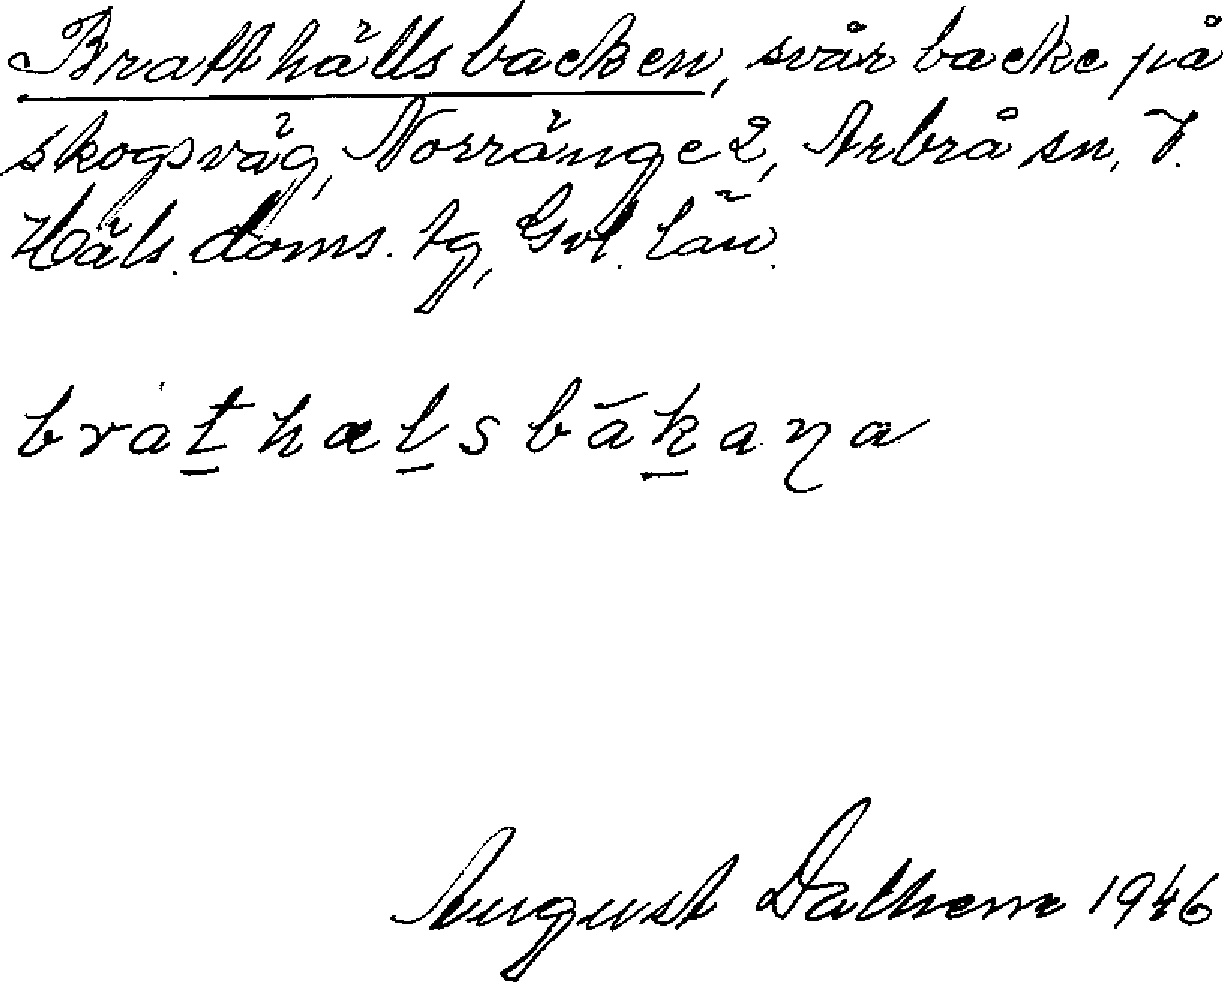 Bratthällsbacken, svår backe på
skogsväg, Norränge 2, Arbrå sn, V.
Häls. doms. tg, Gvl. län.
brat̠hæl̠sbāk̠aɳa
August Dalhem 1946